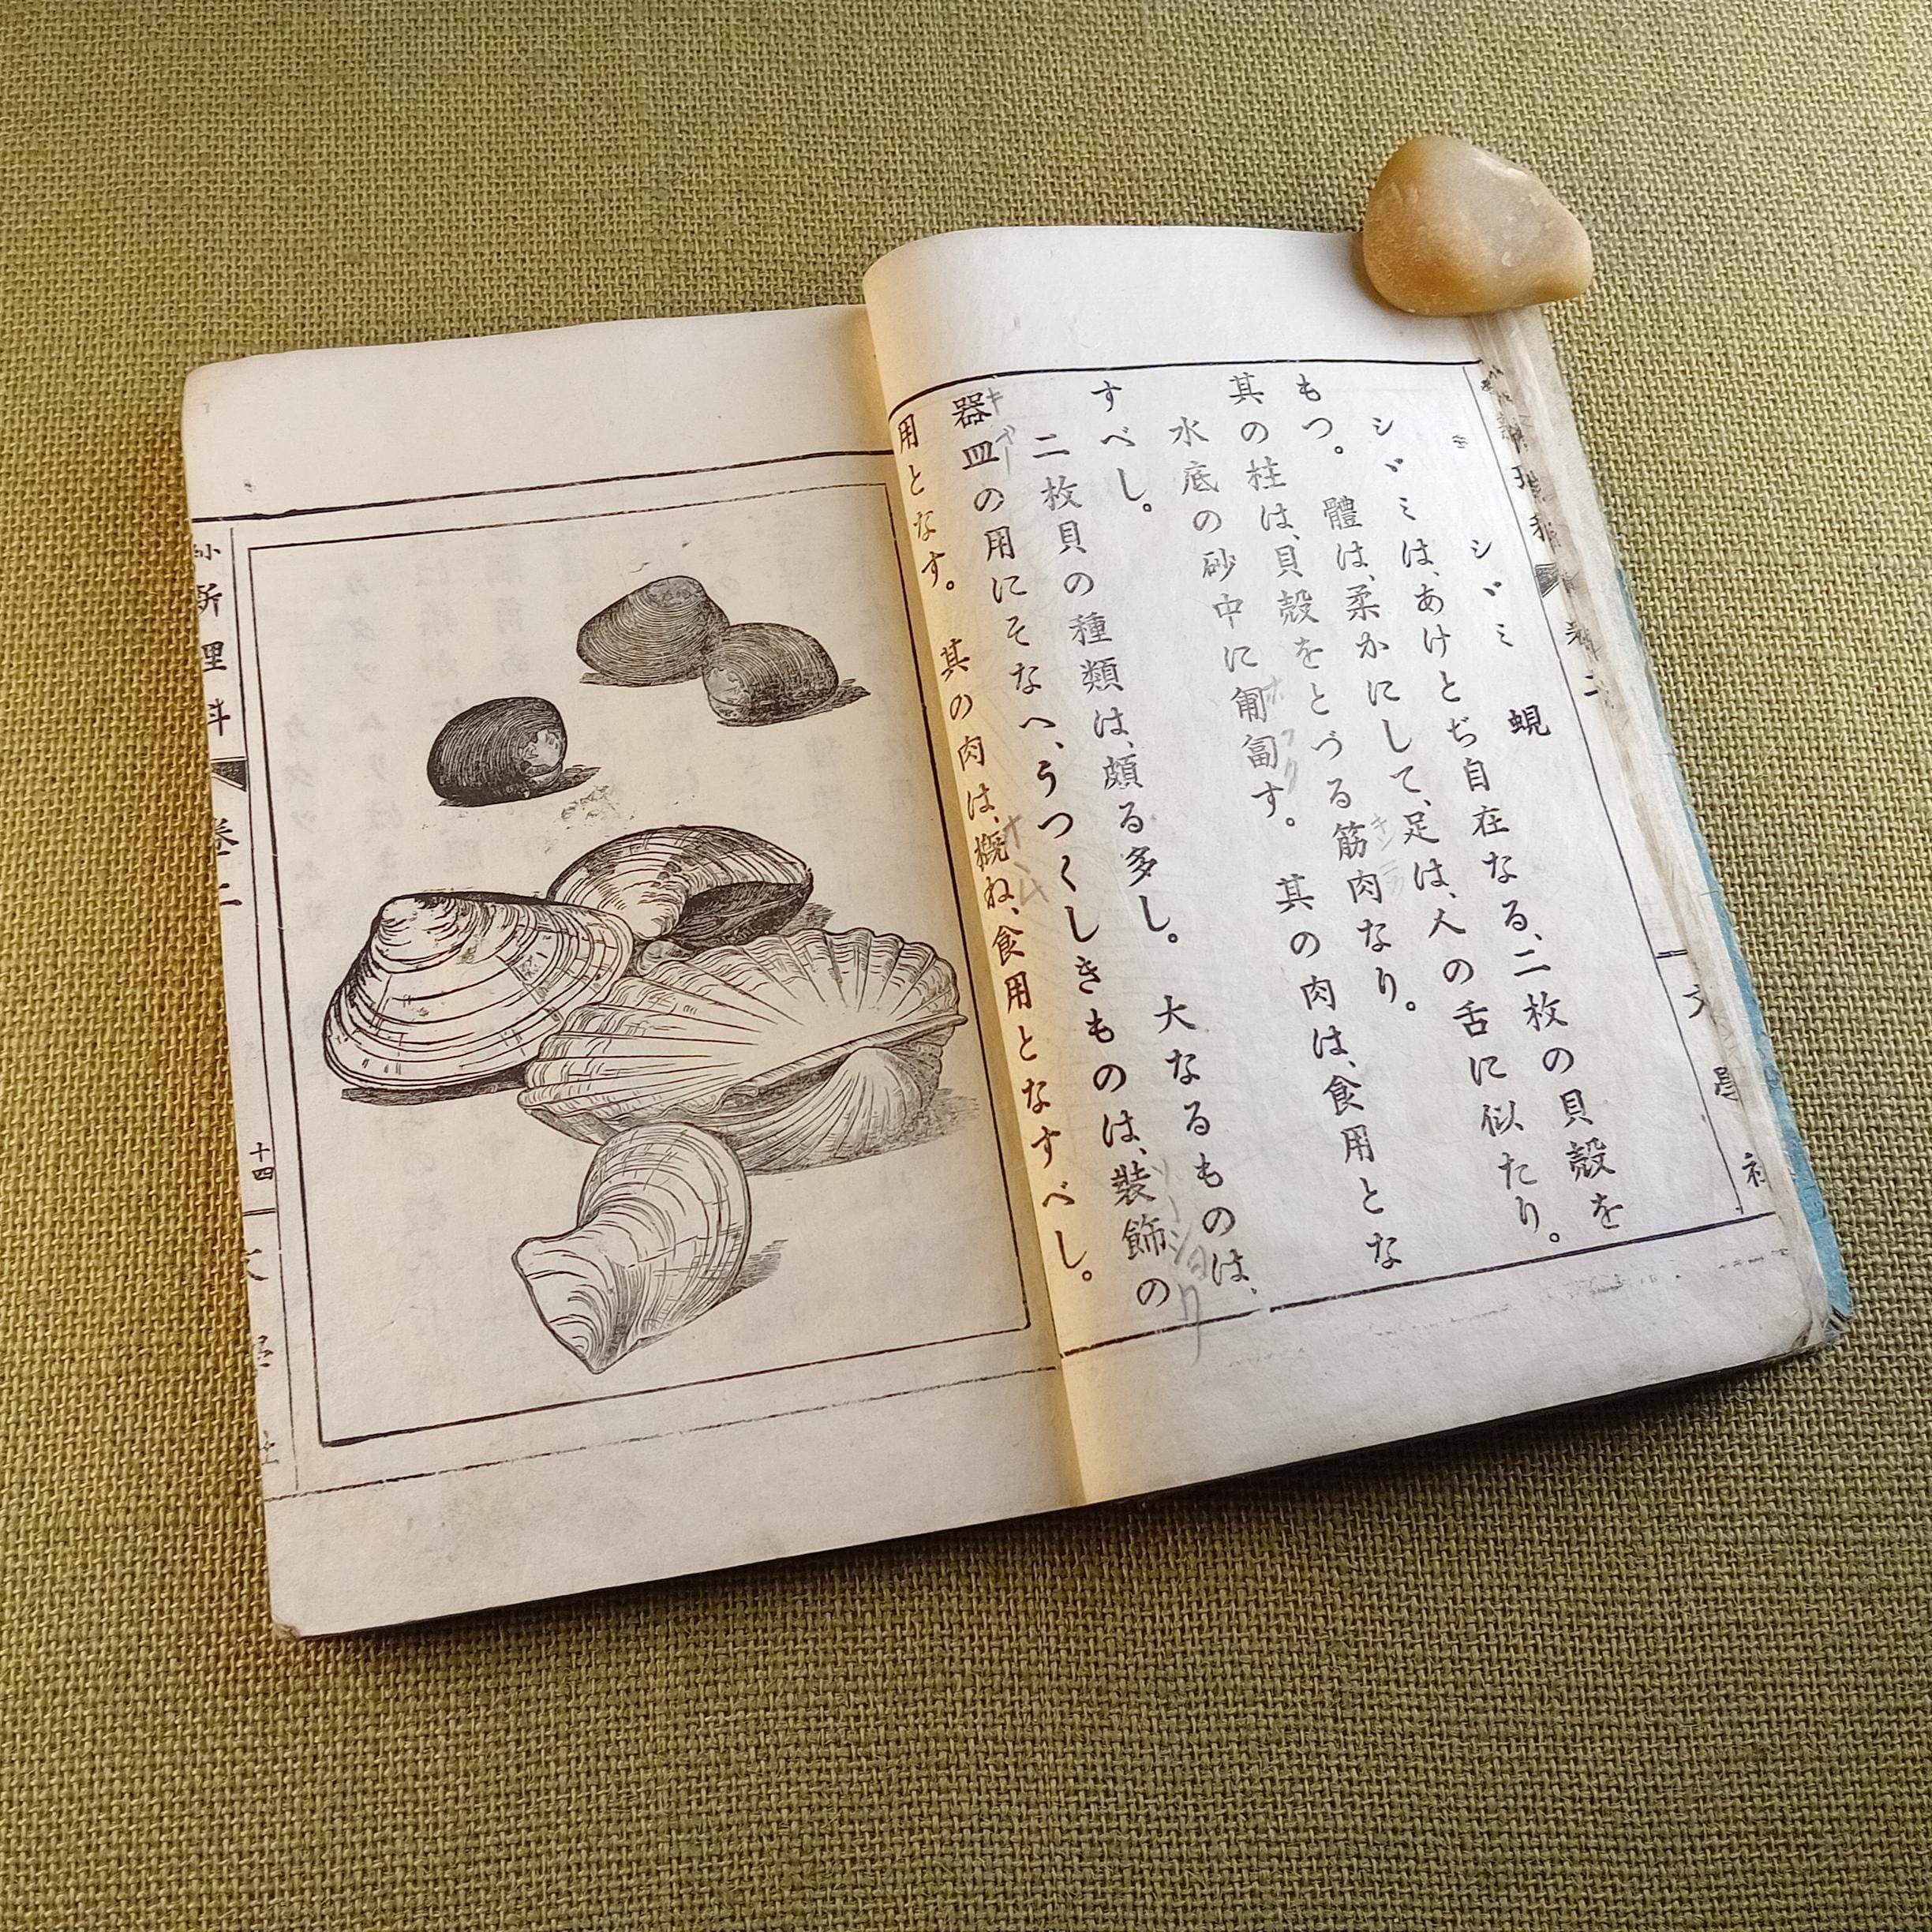 シヾミ 蜆
シヾミは、あけとぢ自在なる、二枚の貝殼を
もつ。 體は、柔かにして、足は、人の舌に似たり。
其の柱は、貝殼をとづる筋肉なり。
水底の砂中に匍匐す。 其の肉は、食用とな
すべし。
二枚貝の種類は、頗る多し。 大なるものは、
器皿の用にそなへ、うつくしきものは、裝飾の
用となす。 其の肉は、概ね、食用となすべし。
新理科
卷二
十四